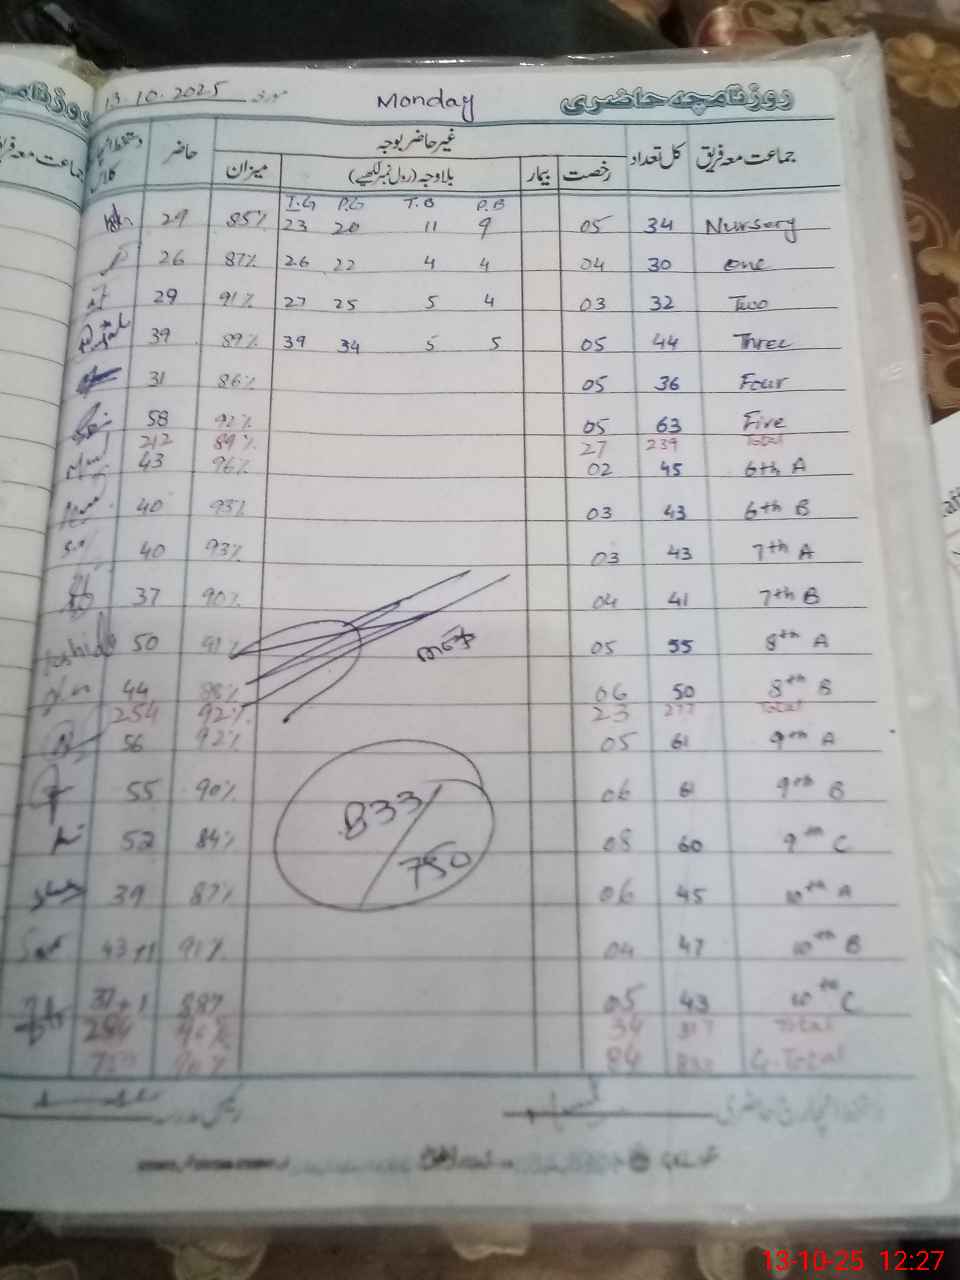 روزنامچہ حاضری Monday مورخہ 13.10.2025
جماعت معہ فریق کل تعداد غیر حاضر بوجہ حاضر
رخصت بیمار بلاوجہ (رول نمبر لکھیے) میزان
T.G P.G T.B P.B
Nursery 34 05 9 11 20 23 85% 29
One 30 04 4 4 22 26 87% 26
Two 32 03 4 5 25 27 91% 29
Three 44 05 5 5 34 39 89% 39
Four 36 05 86% 31
Five 63 05 92% 58
Total 239 27 89% 212
6th A 45 02 96% 43
6th B 43 03 93% 40
7th A 43 03 93% 40
7th B 41 04 90% 37
8th A 55 05 91% 50
8th B 50 06 88% 44
Total 277 23 92% 254
9th A 61 05 92% 56
9th B 61 06 90% 55
9th C 60 08 84% 52
833/750
10th A 45 06 87% 39
10th B 47 04 91% 43+1
10th C 43 05 88% 37+1
Total 317 34 90% 284
G.Total 84 90%
13-10-25 12:27